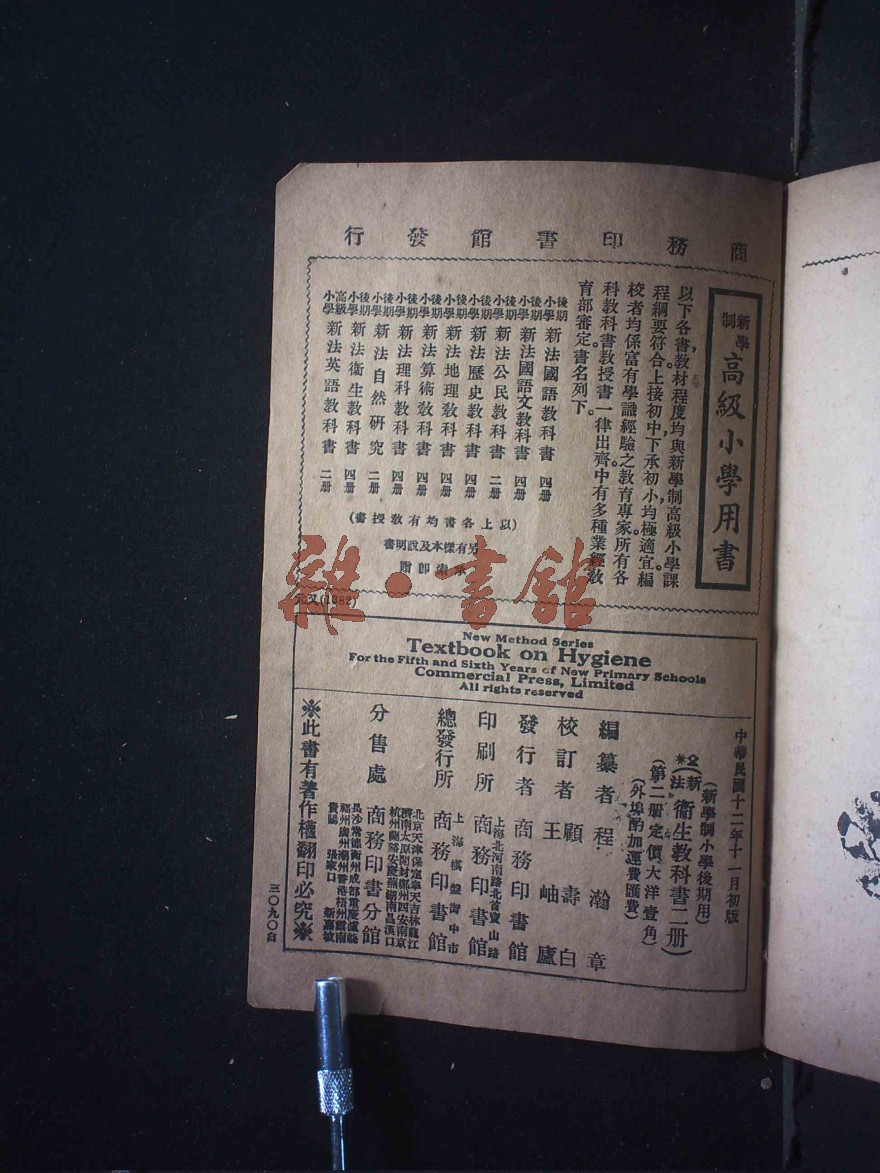 商務印書館發行
新學制
高級小學用書
以下各書,教材程度均與新學制高級小學課
程綱要符合。上接初中,下承初小,均極適宜。編
校者均係富有學識經驗之教育專家。所有各
科教科書教授書一律出齊。中有多種業經教
育部審定。書名列下。
後期小學 新法國語教科書 四册
後期小學 新法國語文教科書 四册
後期小學 新法公民教科書 二册
後期小學 新法歷史教科書 四册
後期小學 新法地理教科書 四册
後期小學 新法算術教科書 四册
後期小學 新法理科教科書 四册
後期小學 新法自然研究 二册
後期小學 新法衞生教科書 四册
高級小學 新法英語教科書 二册
(以上各書均有教授書)
另有樣本及說明書
承索卽附
元又(1382)
New Method Series
Textbook on Hygiene
For the Fifth and Sixth Years of New Primary Schools
Commercial Press, Limited
All rights reserved
中華民國十二年十一月初版
(新學制小學後期用)
(新法)衞生教科書二册
(第二册定價大洋壹角)
(外埠酌加運費匯費)
編纂者 程瀚章
校訂者 顧壽白
王岫廬
發行者 商務印書館
印刷所 上海北河南路北首寶山路
商務印書館
總發行所 上海棋盤街中市
商務印書館
分售處 北京天津保定奉天吉林龍江
濟南太原開封鄭州西安南京
杭州蘭谿安慶蕪湖南昌漢口
商務印書分館
長沙常德衡州成都重慶瀘縣
福州廣州潮州香港梧州雲南
貴陽 張家口 新嘉坡
※此書有著作權翻印必究※
三〇九〇自
雜·書館